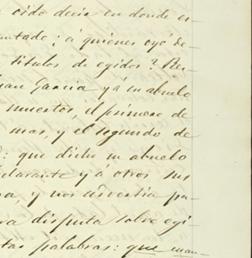 oido decir en donde es-
; á quienes oyó de
titulos de egidos? Res-
Garcia y á su abuelo
muertos, el primero de
mas, y el segundo de
: que dicho su abuelo
declarante y á otros sus
, y nos advertia pa-
disputa sobre egi-
tas palabras: que man-